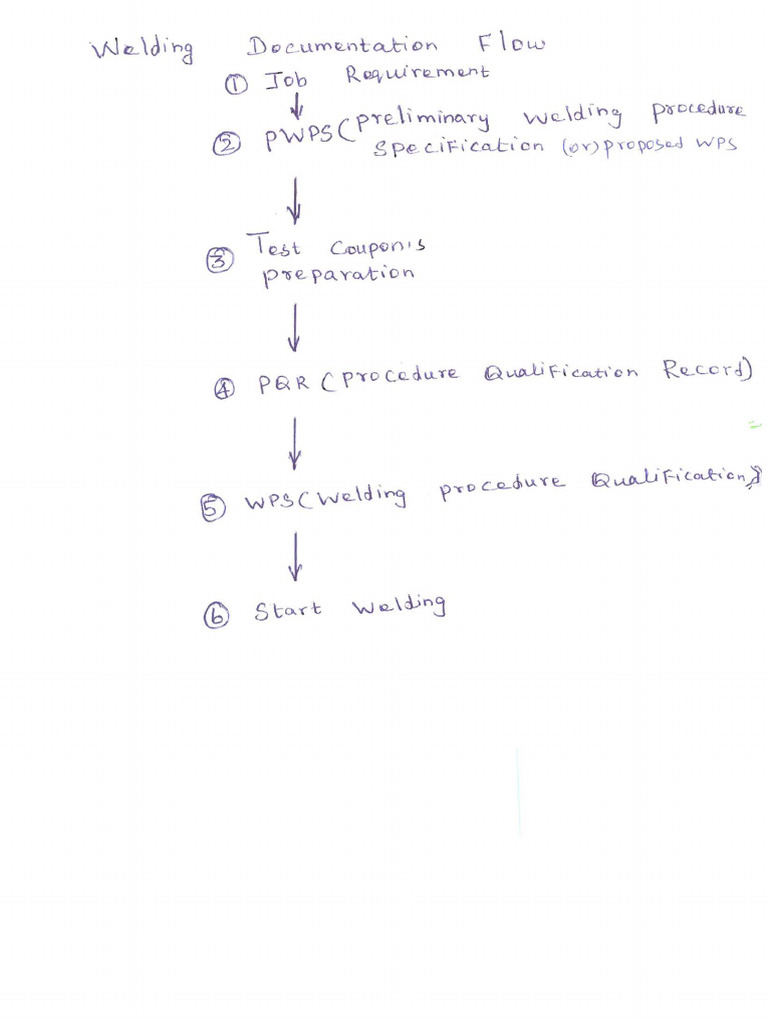 Welding Documentation Flow
① Job Requirement
② PWPS (Preliminary Welding procedure
Specification (or) proposed WPS
③ Test Coupon's
preparation
④ PQR (Procedure Qualification Record)
⑤ WPS (Welding procedure Qualification)
⑥ Start Welding